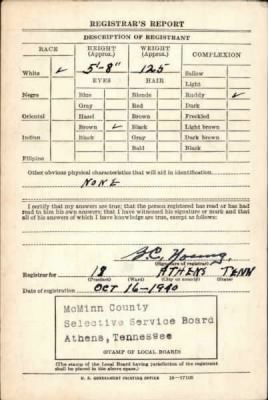 REGISTRAR'S REPORT
DESCRIPTION OF REGISTRANT
RACE HEIGHT (Approx.) WEIGHT (Approx.) COMPLEXION
White ✓ 5'-8" 125 Sallow
EYES HAIR Light
Negro Blue Blonde Ruddy ✓
Gray Red Dark
Oriental Hazel Brown Freckled
Brown ✓ Black Light brown
Indian Black Gray Dark brown
Bald Black
Filipino
Other obvious physical characteristics that will aid in identification
NONE
I certify that my answers are true; that the person registered has read or has had
read to him his own answers; that I have witnessed his signature or mark and that
all of his answers of which I have knowledge are true, except as follows:
(Signature of registrar)
Registrar for 18 ATHENS TENN
(Precinct) (Ward) (City or county) (State)
Date of registration OCT 16-1940
McMinn County
Selective Service Board
Athens, Tennessee
(STAMP OF LOCAL BOARD)
(The stamp of the Local Board having jurisdiction of the registrant
shall be placed in the above space.)
U. S. GOVERNMENT PRINTING OFFICE 16-17105